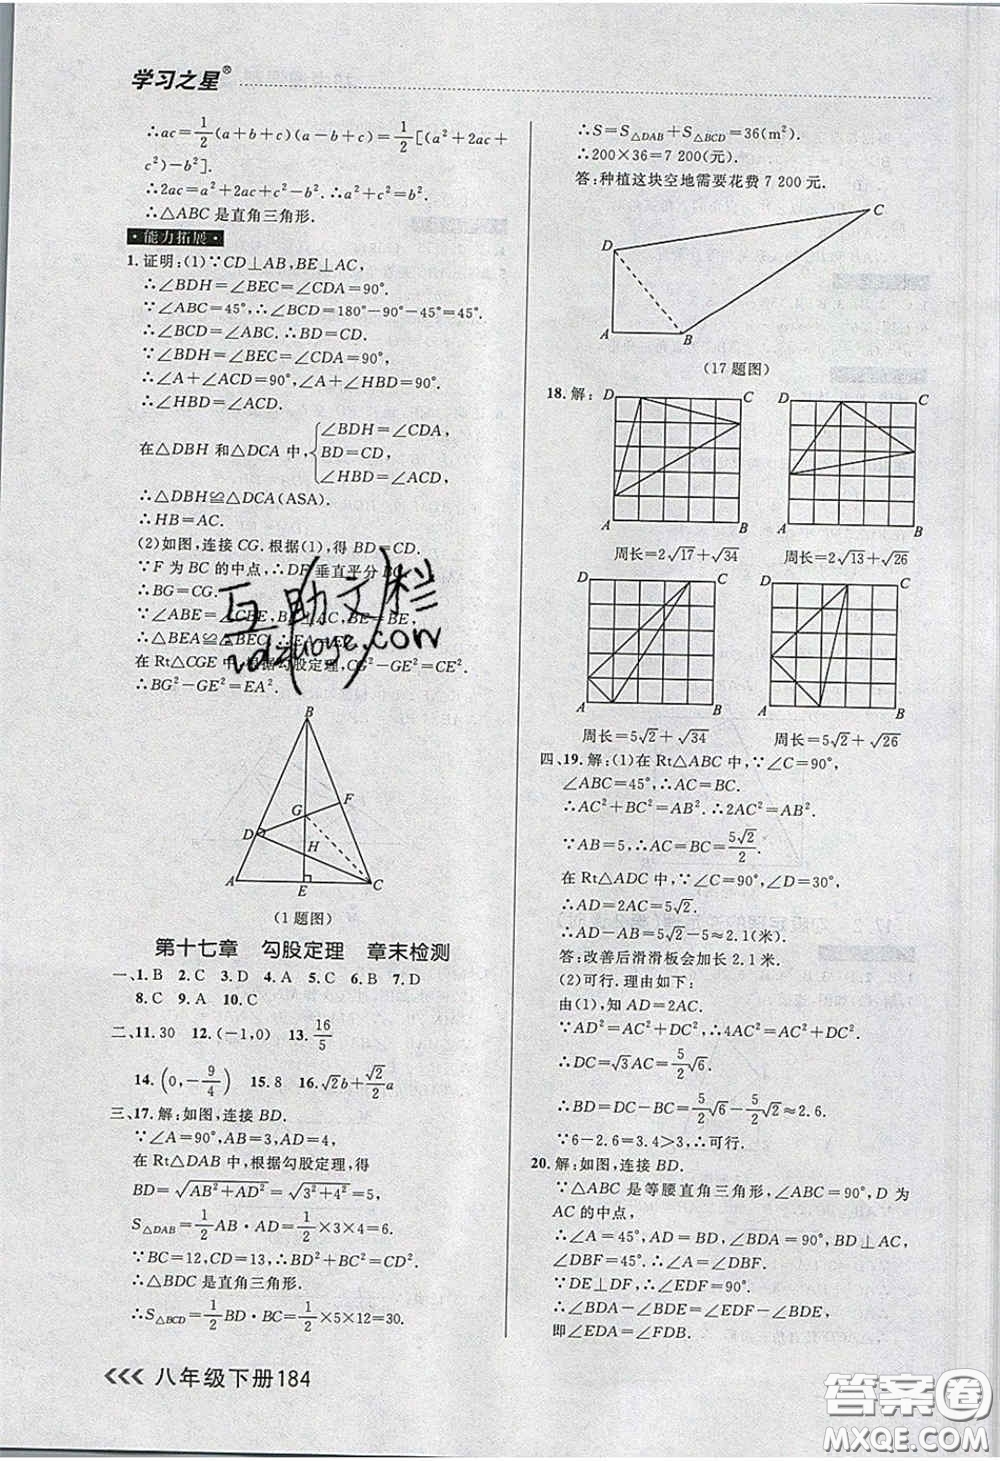 学习之星®
∴ac=1/2(a+b+c)(a-b+c)=1/2[(a²+2ac+
c²)-b²].
∴2ac=a²+2ac+c²-b². ∴a²+c²=b².
∴△ABC是直角三角形.
能力拓展
1.证明:(1)∵CD⊥AB,BE⊥AC,
∴∠BDH=∠BEC=∠CDA=90°.
∵∠ABC=45°,∴∠BCD=180°-90°-45°=45°.
∴∠BCD=∠ABC. ∴BD=CD.
∵∠BDH=∠BEC=∠CDA=90°,
∴∠A+∠ACD=90°,∠A+∠HBD=90°.
∴∠HBD=∠ACD.
在△DBH和△DCA中,{∠BDH=∠CDA,
BD=CD,
∠HBD=∠ACD,
∴△DBH≌△DCA(ASA).
∴HB=AC.
(2)如图,连接CG.根据(1),得BD=CD.
∵F为BC的中点,∴DF垂直平分BC.
∴BG=CG.
∵∠ABE=∠CBE,BE⊥AC,BE=BE,
∴△BEA≌△BEC. ∴EA=EC.
在Rt△CGE中,根据勾股定理,CG²-GE²=CE².
∴BG²-GE²=EA².
互助文栏
B
F
G
D
H
A E C
(1题图)
第十七章 勾股定理 章末检测
一、1.B 2.C 3.D 4.A 5.C 6.B 7.D
8.C 9.A 10.C
二、11.30 12.(-1,0) 13.16/5
14.(0,-9/4) 15.8 16.√2b+√2/2a
三、17.解:如图,连接BD.
∵∠A=90°,AB=3,AD=4,
在Rt△DAB中,根据勾股定理,得
BD=√(AB²+AD²)=√(3²+4²)=5,
S△DAB=1/2AB·AD=1/2×3×4=6.
∵BC=12,CD=13,∴BD²+BC²=CD².
∴△BDC是直角三角形.
∴S△BCD=1/2BD·BC=1/2×5×12=30.
八年级下册184
∴S=S△DAB+S△BCD=36(m²).
∴200×36=7 200(元).
答:种植这块空地需要花费7 200元.
C
D
A B
(17题图)
18.解: D C D C
A B A B
周长=2√17+√34 周长=2√13+√26
D C D C
A B A B
周长=5√2+√34 周长=5√2+√26
四、19.解:(1)在Rt△ABC中,∵∠C=90°,
∠ABC=45°,∴AC=BC.
∴AC²+BC²=AB². ∴2AC²=AB².
∵AB=5,∴AC=BC=5√2/2.
在Rt△ADC中,∵∠C=90°,∠D=30°,
∴AD=2AC=5√2.
∴AD-AB=5√2-5≈2.1(米).
答:改善后滑滑板会加长2.1米.
(2)可行.理由如下:
由(1),知AD=2AC.
∵AD²=AC²+DC²,∴4AC²=AC²+DC².
∴DC=√3AC=5/2√6.
∴BD=DC-BC=5/2√6-5/2√2≈2.6.
∵6-2.6=3.4>3,∴可行.
20.解:如图,连接BD.
∵△ABC是等腰直角三角形,∠ABC=90°,D为
AC的中点,
∴∠A=45°,BD=AD,∠BDA=90°,
∠DBF=45°. ∴∠A=∠DBF.
∵DE⊥DF,∴∠EDF=90°.
∴∠BDA-∠BDE=∠EDF-∠BDE,
即∠EDA=∠FDB.
答案圈
MXQE.COM